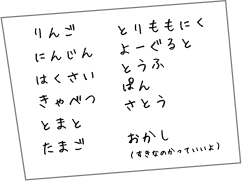 りんご
にんじん
はくさい
きゃべつ
とまと
たまご
とりももにく
よーぐると
とうふ
ぱん
さとう
おかし
(すきなのかっていいよ)